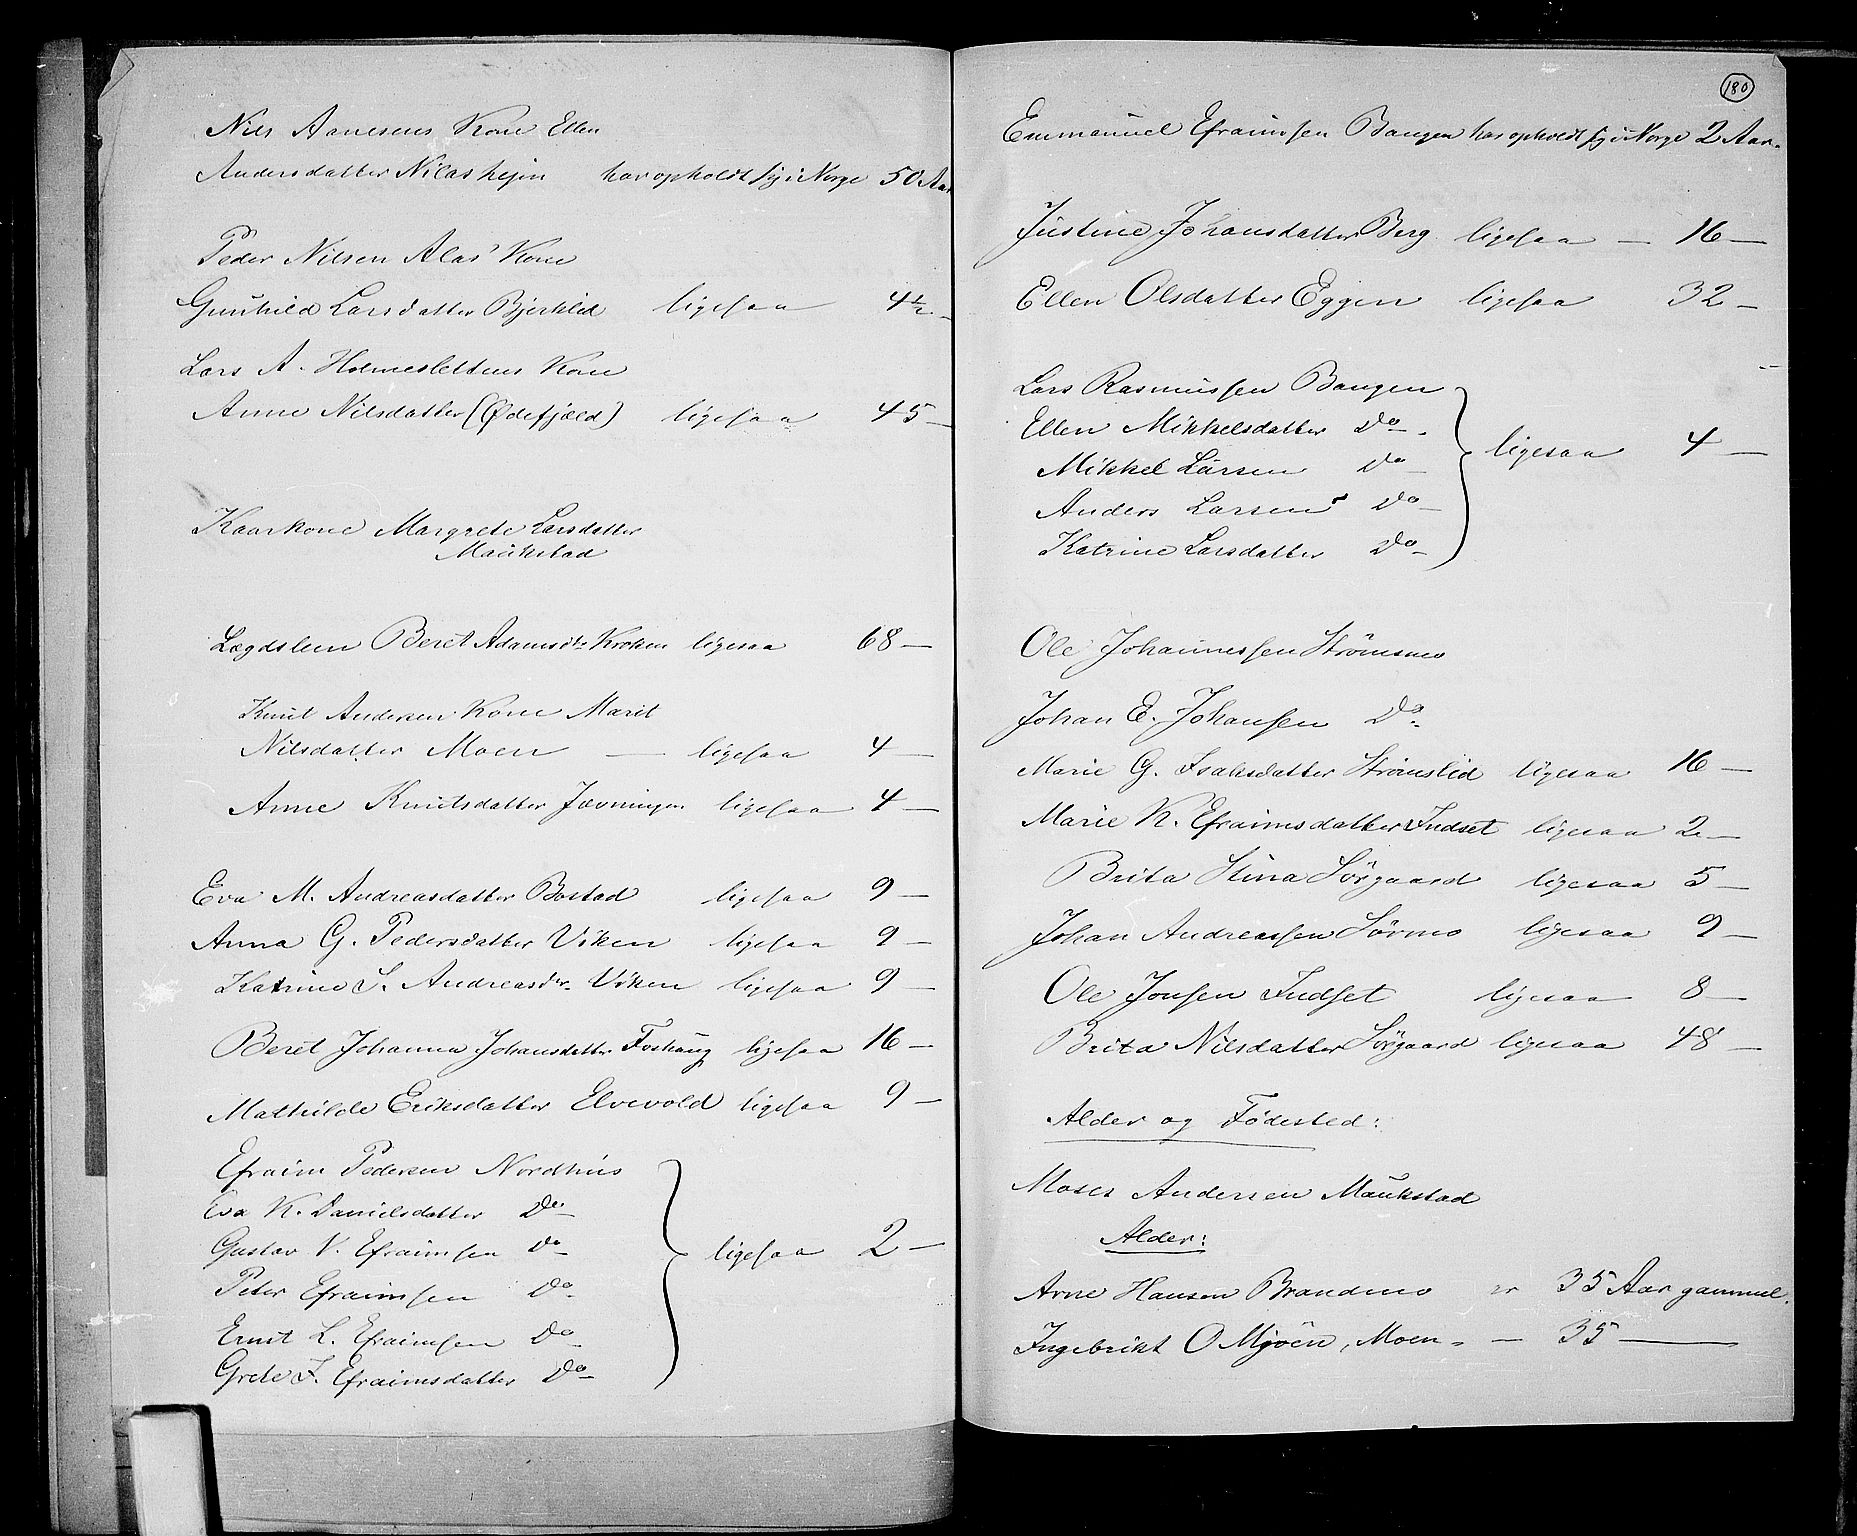 Nils Arnesens Kone Ellen
Andersdatter Nilashejen har opholdt sig i Norge 50 Aar
Peder Nilsen Alas' Kone
Gunhild Larsdatter Bjerklid ligesaa 4½ —
Lars A. Holmeslettens Kone
Anne Nilsdatter (Ødefjæld) ligesaa 45 —
Kaarkone Margrete Larsdatter
Maukstad
Lægdslem Beret Adamsdtr Kroken ligesaa 68 —
Knut Andersen Kone Marit
Nilsdatter Moen — ligesaa 4 —
Anne Knutsdatter Jævningen ligesaa 4 —
Eva M. Andreasdatter Bostad ligesaa 9 —
Anna G. Pedersdatter Viken ligesaa 9 —
Katrine S. Andreasdr. Viken ligesaa 9 —
Beret Johanna Johansdatter Foshaug ligesaa 16 —
Mathilde Eriksdatter Elvevold ligesaa 9 —
Efraim Pedersen Nordhus
Eva K. Danielsdatter Do
Gustav V. Efraimsen Do
ligesaa 2 —
Peter Efraimsen Do
Ernst L. Efraimsen Do
Grete F. Efraimsdatter Do
180
Emmanuel Efraimsen Bangen har opholdt sig i Norge 2 Aar.
Justine Johansdatter Berg ligesaa — 16 —
Ellen Olsdatter Eggen ligesaa 32 —
Lars Rasmussen Bangen
Ellen Mikkelsdatter Do
ligesaa 4 —
Mikkel Larsen Do
Anders Larsen Do
Katrine Larsdatter Do
Ole Johannessen Strömsmo
Johan E. Johansen Do
Marie G. Isaksdatter Strömslid ligesaa 16 —
Marie K. Efraimsdatter Indset ligesaa 2 —
Brita Stina Sörgaard ligesaa 5 —
Johan Andreassen Sörmo ligesaa 9 —
Ole Jonsen Indset ligesaa 8 —
Brita Nilsdatter Sörgaard ligesaa 48 —
Alder og Födested:
Moses Andersen Maukstad
Alder:
Arne Hansen Brandmo er 35 Aar gammel.
Ingebrikt O Mjöen, Moen — 35 —